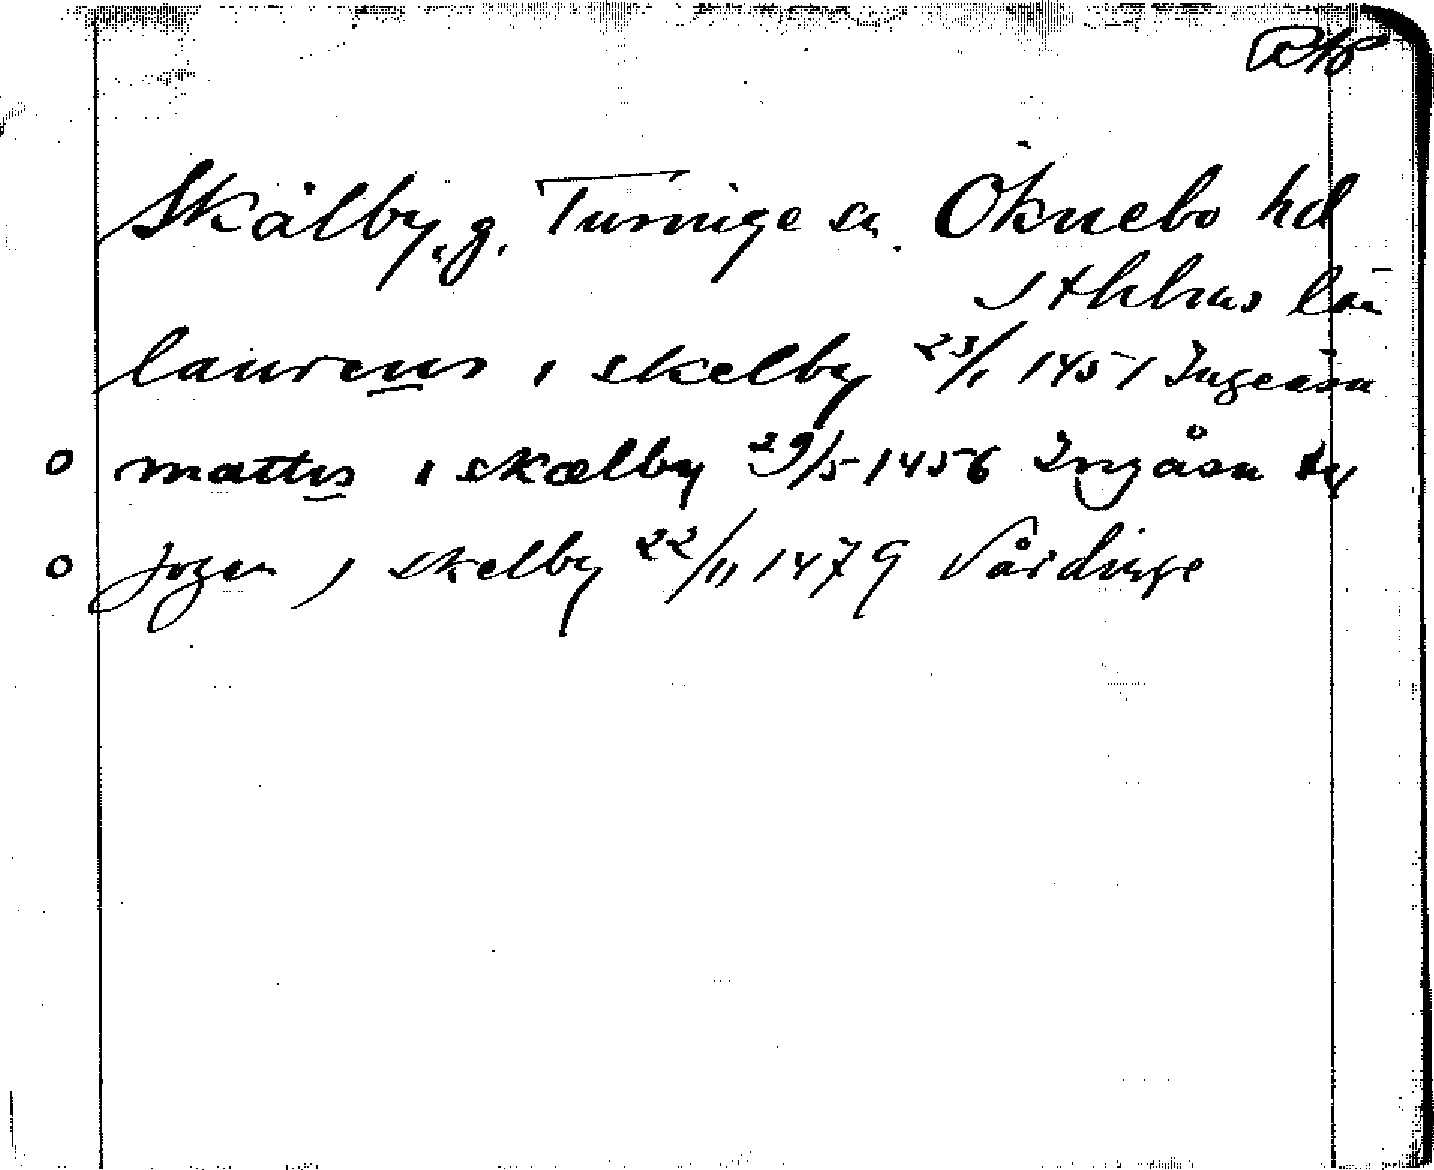 Skälby, g. Turinge sn. Öknebo hd
Sthlms län
laurens i skelby 23/1 1451 Ingeåsa
mattis i skælby 29/5 1456 Ingåsa
jogan i skelby 22/11 1479 Vårdinge